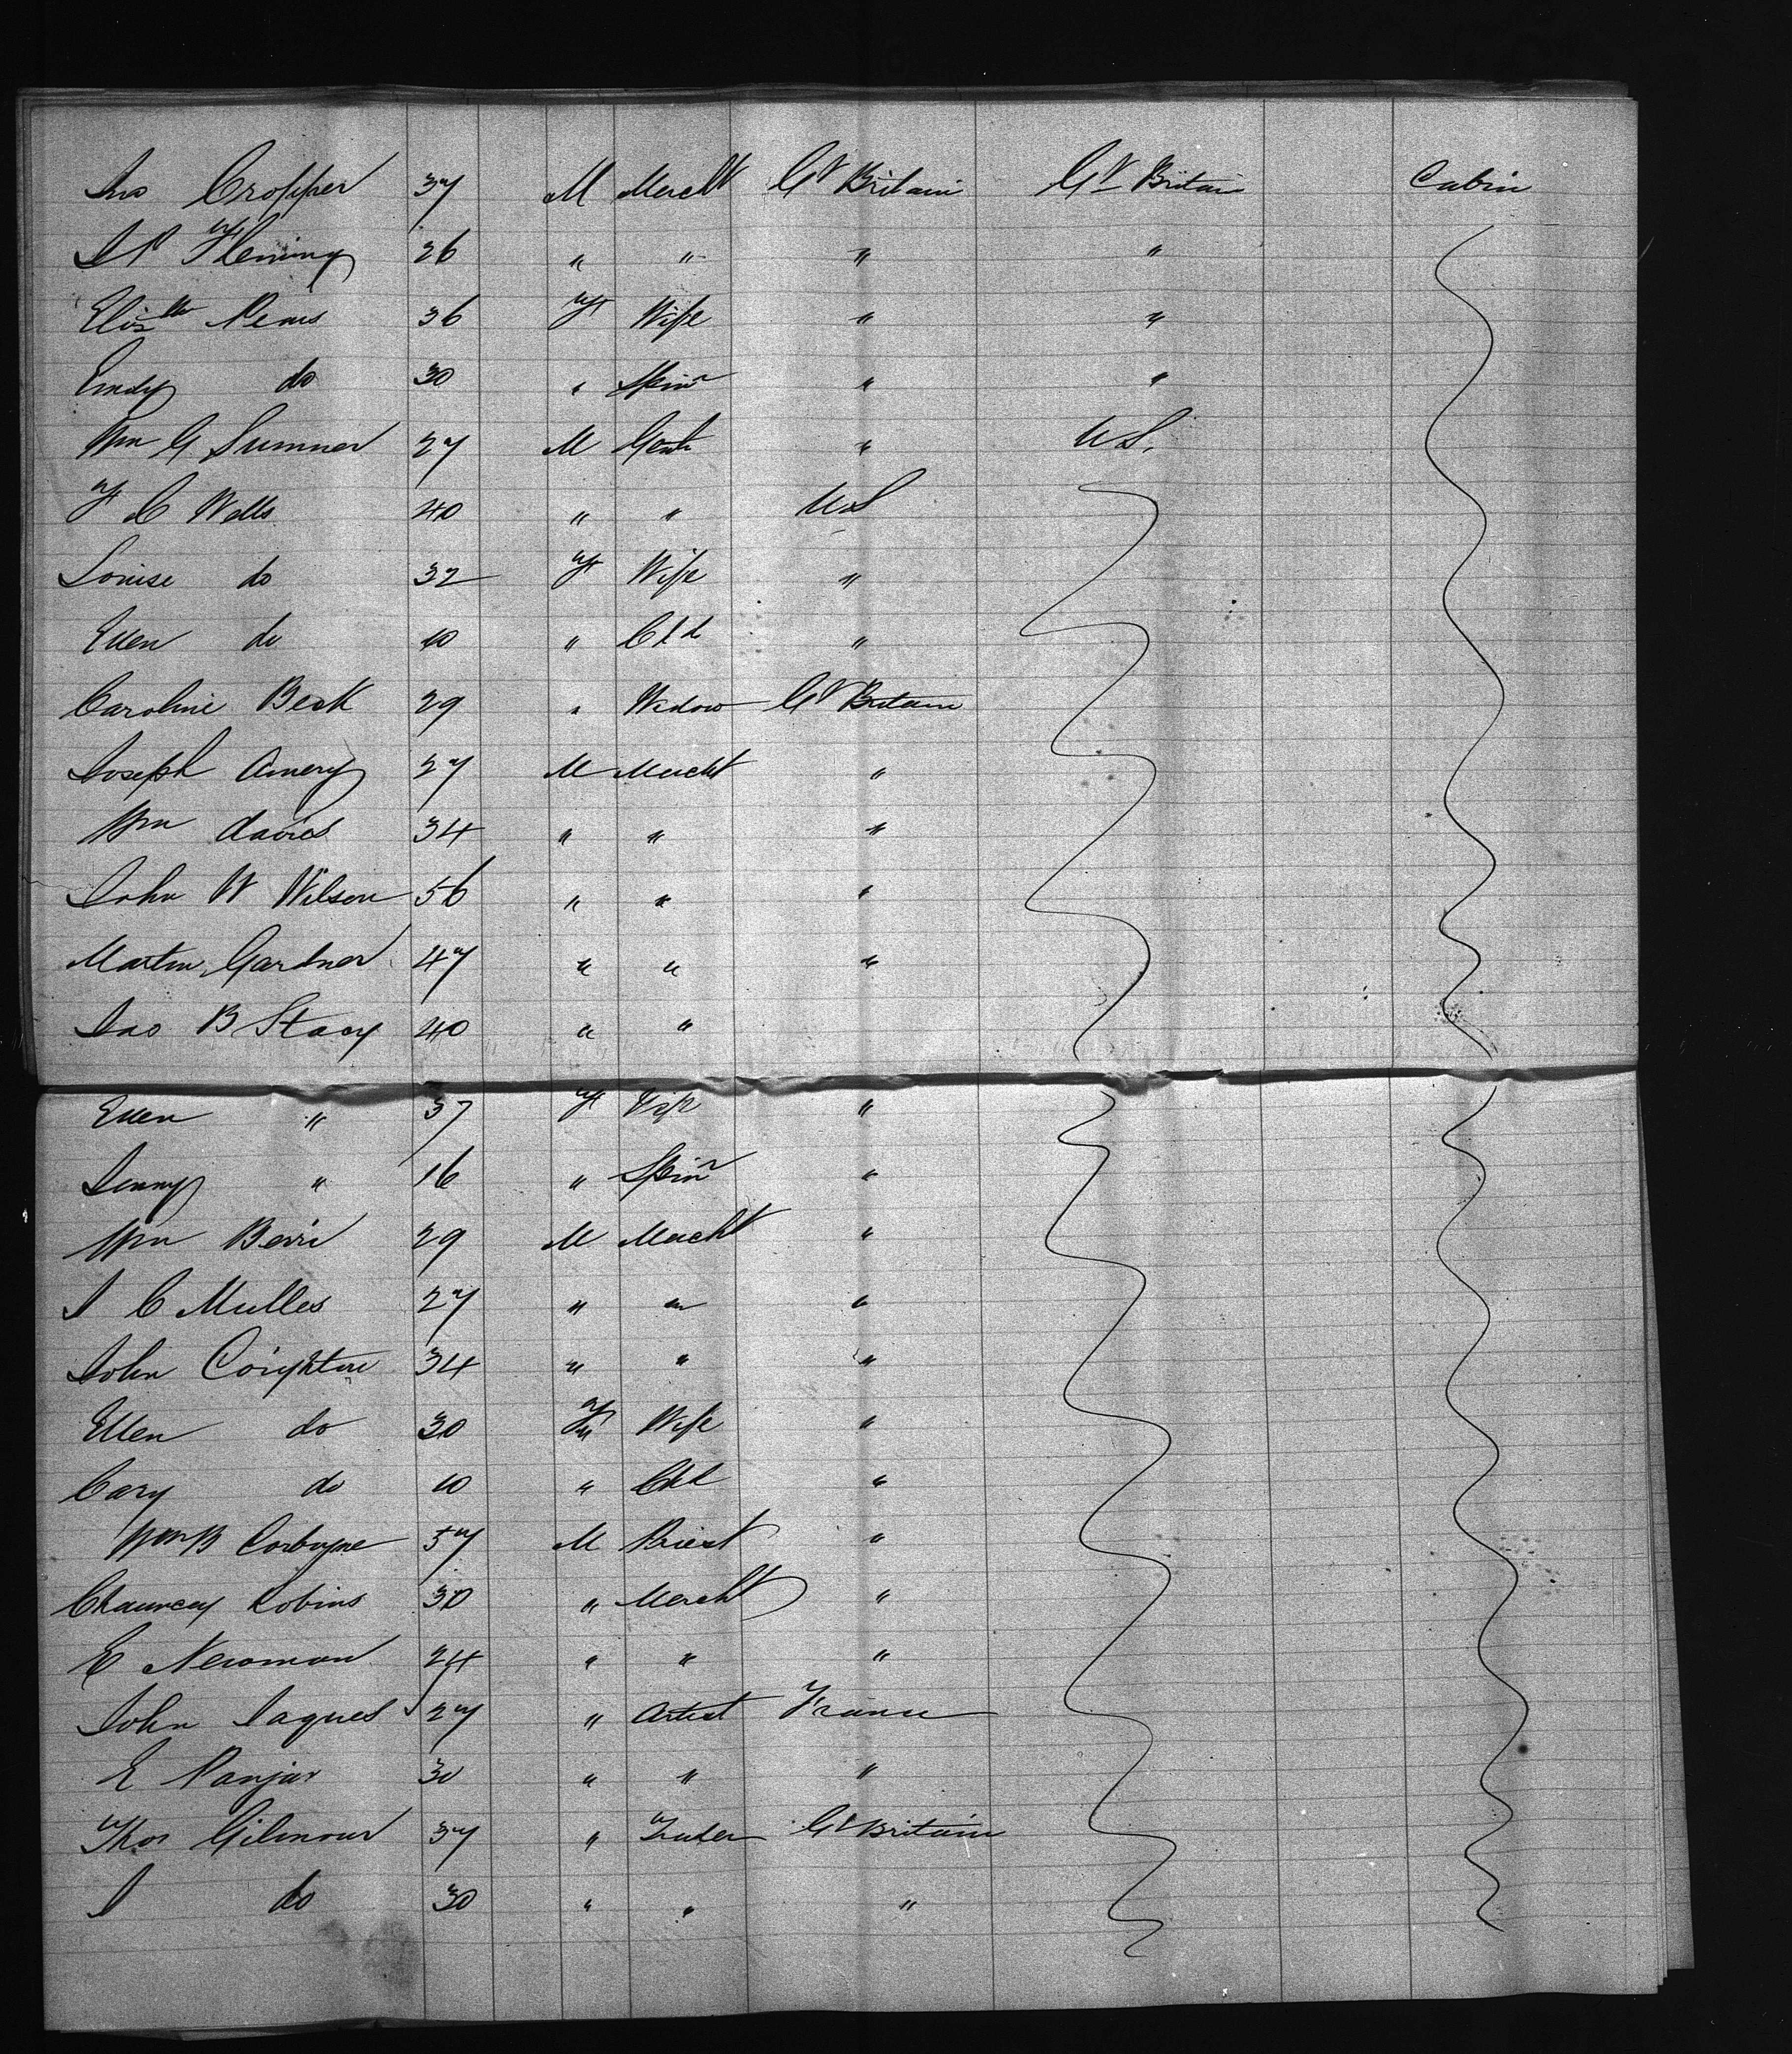 Jno Cropper 37 M Mercht Gt Britain Gt Britain Cabin
Fleming 26 " " " "
Elizth 36 F Wife " "
Emily do 30 " Spinr " "
Wm G Sumner 27 M Gent " U S.
F C Wells 40 " " U S
Louise do 32 F Wife "
Ellen do 10 " Chd "
Caroline Beck 29 " Widow Gt Britain
Joseph Amery 27 M Mercht "
Wm Davies 34 " " "
John W Wilson 56 " " "
Martin Gardner 47 " " "
Jas B Stacy 40 " "
Ellen " 37 F Wife "
Jenny " 16 " Spinr "
Wm Berri 29 M Mercht "
J C Mulles 27 " " "
John Coighton 34 " " "
Ellen do 30 F Wife "
Cary do 10 " Chd "
Wm B Corbyne 57 M Priest "
Chauncey Robins 30 " Mercht "
E Newman 24 " " "
John Jaques 27 " Artist France
E Panjar 30 " " "
Thos Gilmour 37 " Gt Britain
J do 30 " " "